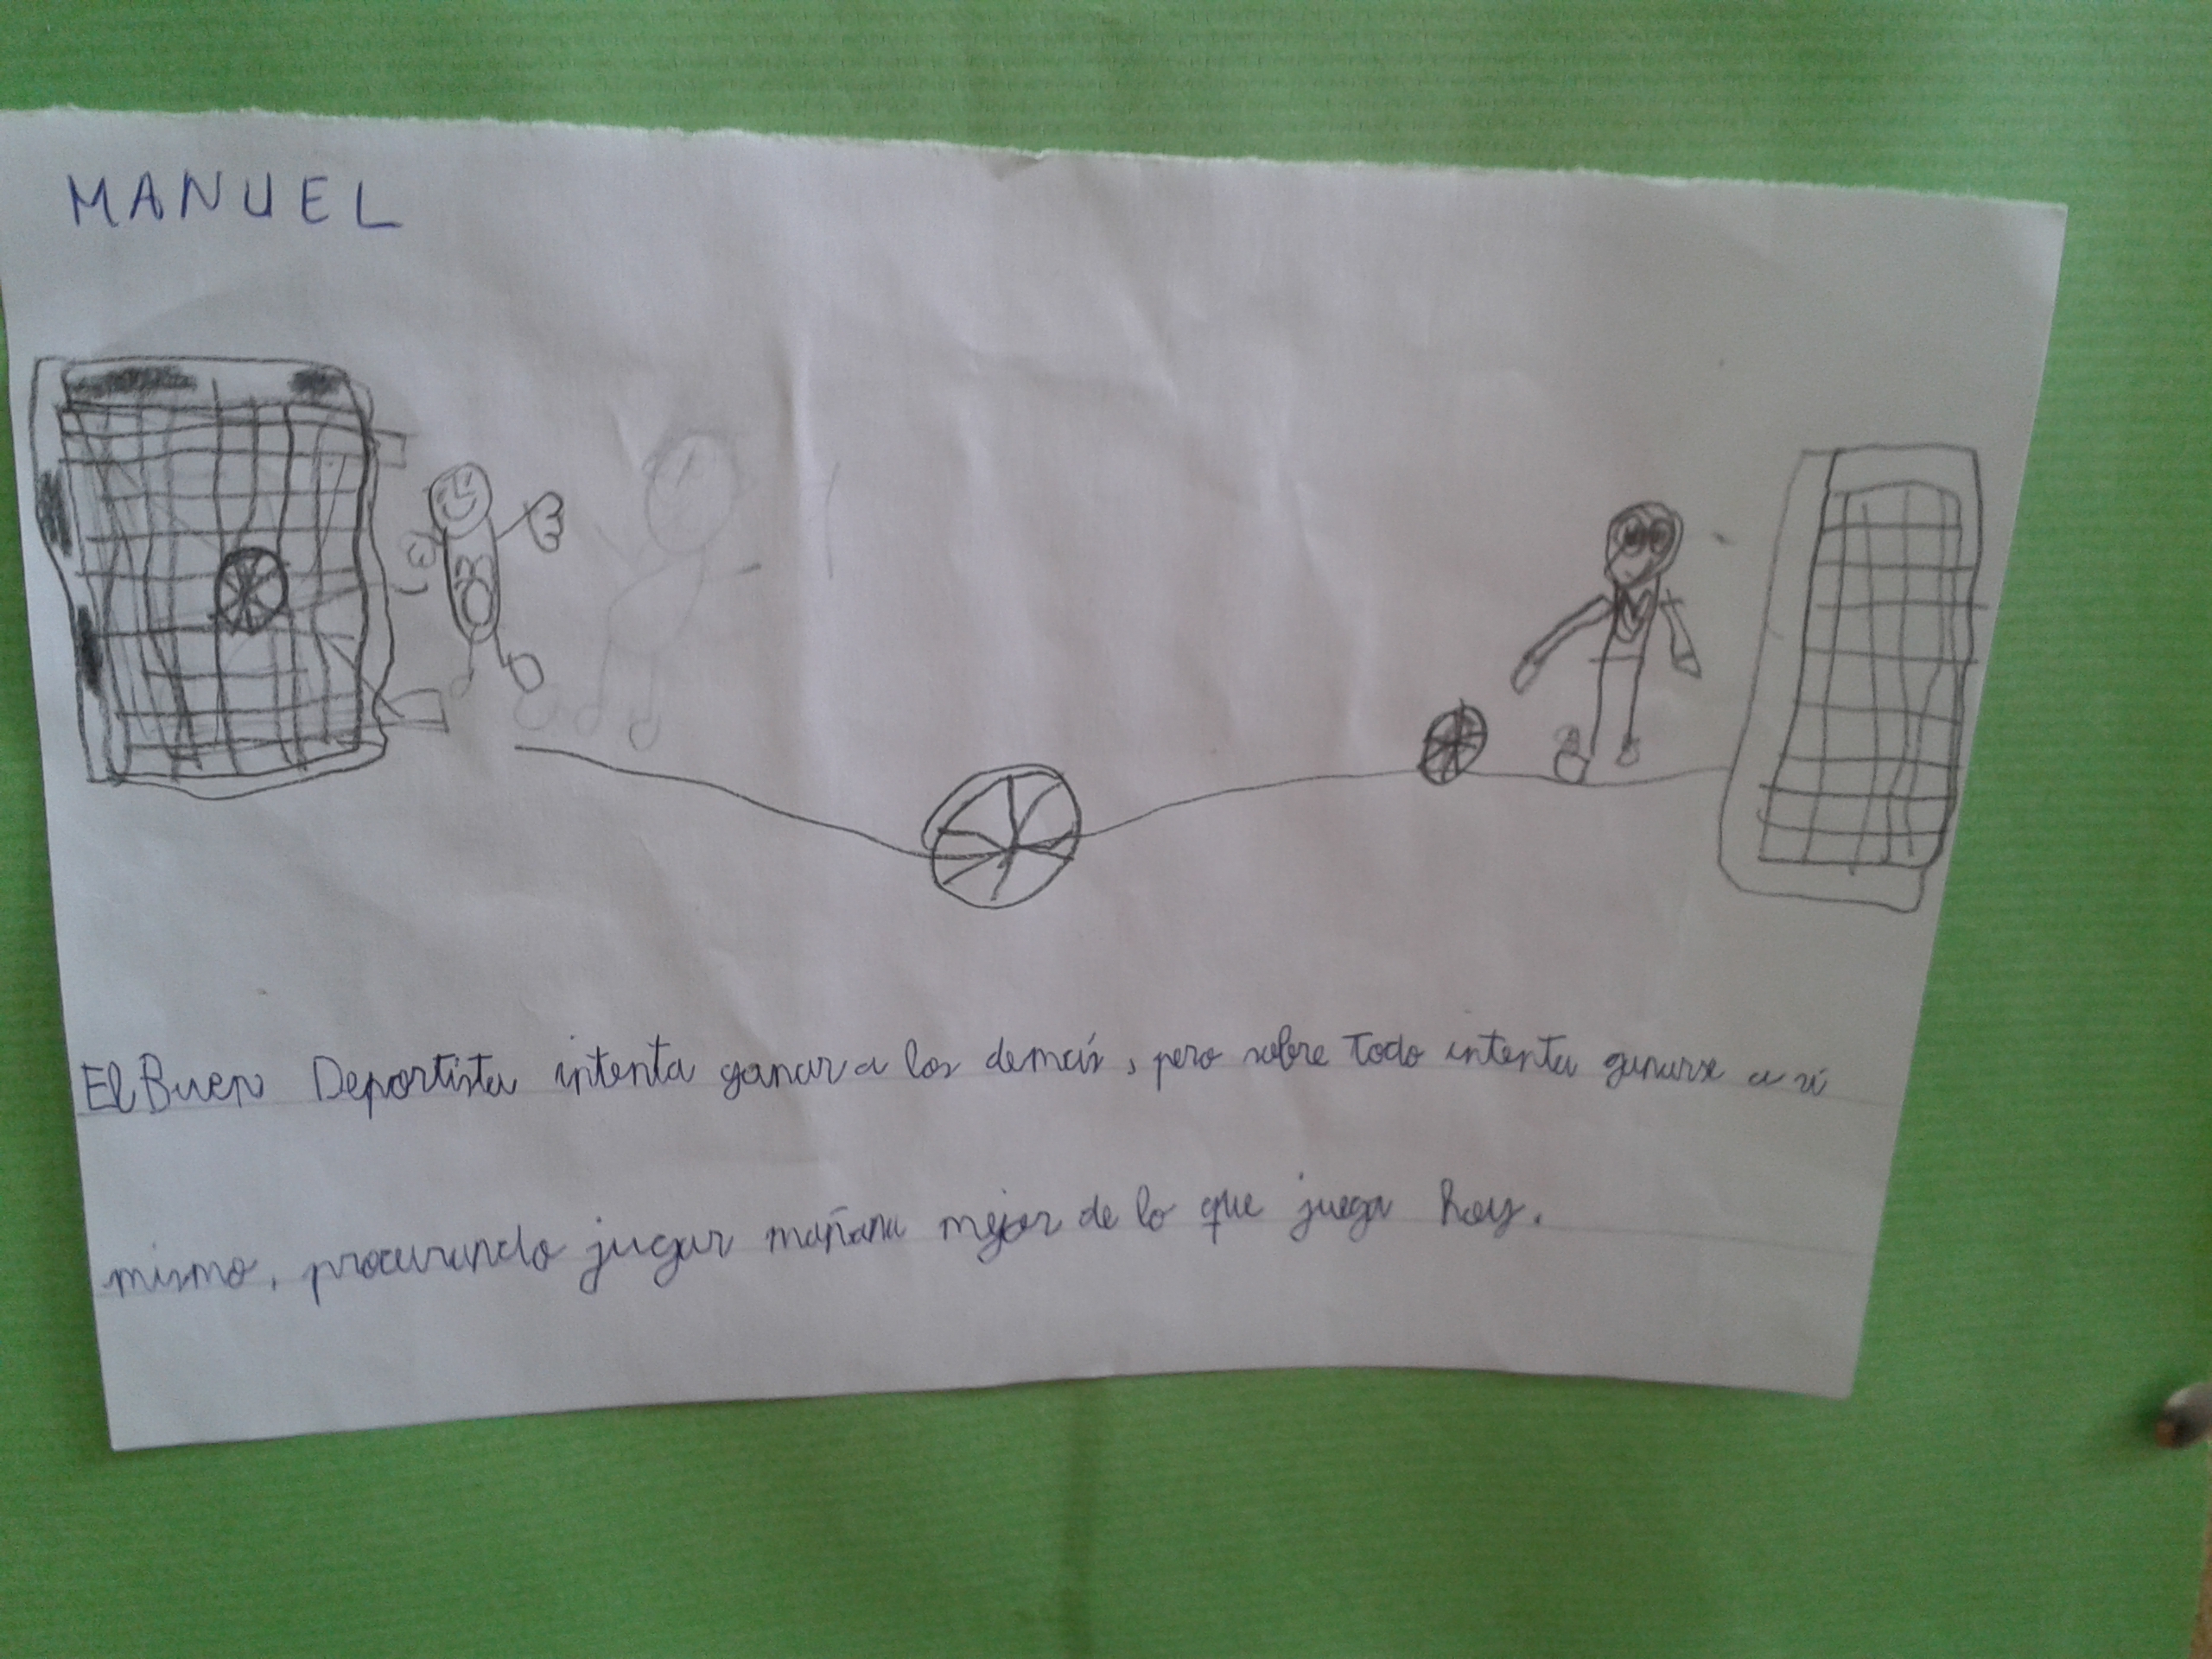 MANUEL
El Buen Deportista intenta ganar a los demás, pero sobre todo intenta ganarse a sí
mismo, procurando jugar mañana mejor de lo que juega hoy.